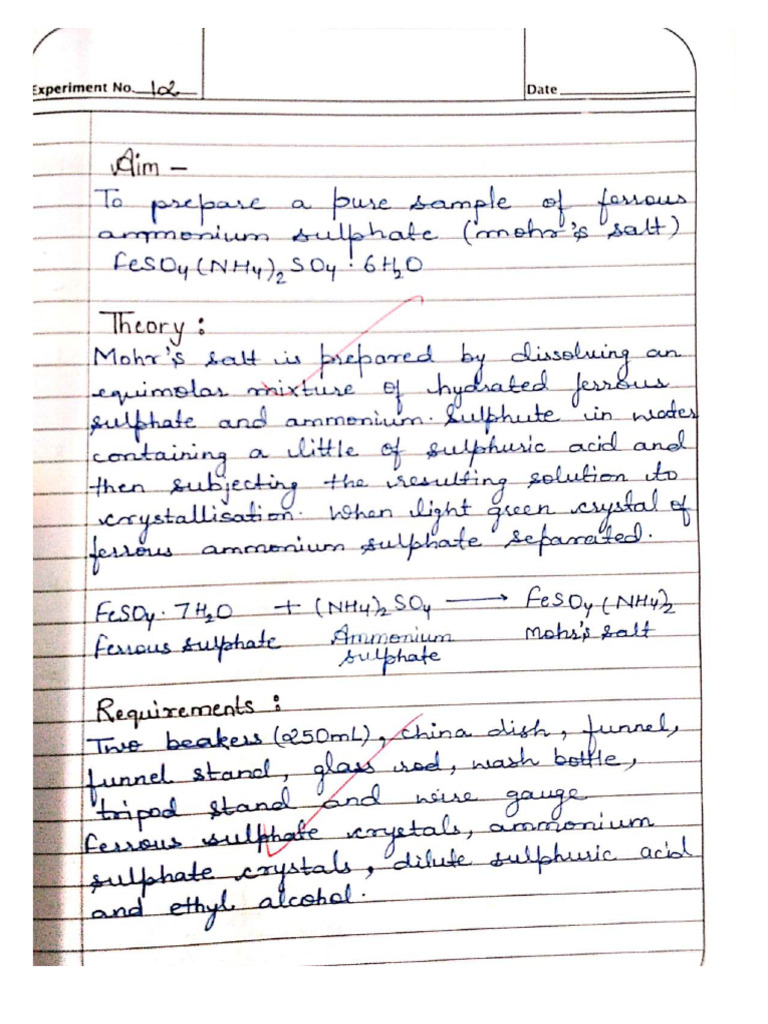 Experiment No. 12
Date
Aim -
To prepare a pure sample of ferrous
ammonium sulphate (mohr's salt)
FeSO4(NH4)2SO4·6H2O
Theory :
Mohr's salt is prepared by dissoluing an
equimolar mixture of hydrated ferrous
sulphate and ammonium. Sulphute in water
containing a little of sulphuric acid and
then subjecting the resulting solution to
crystallisation. When light green crystal of
ferrous ammonium sulphate separrated.
FeSO4·7H2O + (NH4)2SO4 ⟶ FeSO4(NH4)2
Ferrous sulphate Ammonium sulphate Mohr's salt
Requirements :
Two beakers (250mL), China dish, funnel,
funnel stand, glass rod, wash bottle,
tripod stand and wire gauge
ferrous sulphate crystals, ammonium
sulphate crystals, dilute sulphuric acid
and ethyl alcohol.